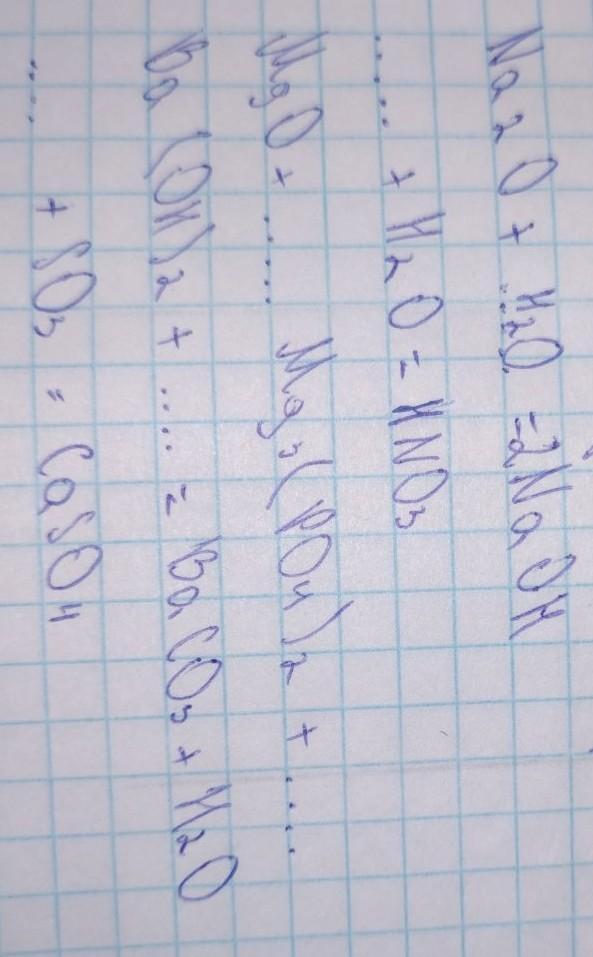 Na2O + ..H2O.. = 2NaOH
..... + H2O = HNO3
MgO + ..... Mg3(PO4)2 + ....
Ba(OH)2 + .... = BaCO3 + H2O
.... + SO3 = CaSO4